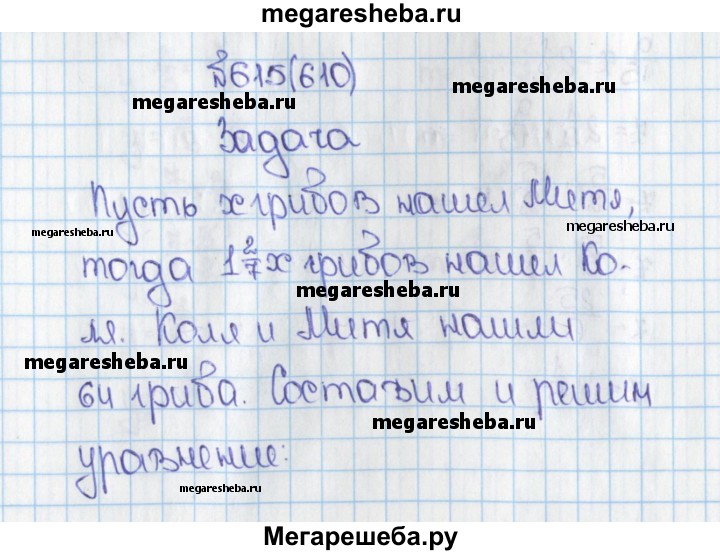 megaresheba.ru
№615(610)
megaresheba.ru
megaresheba.ru
Задача
Пусть x грибов нашел Митя,
megaresheba.ru
megaresheba.ru
тогда 1 2/7 x грибов нашел Ко-
megaresheba.ru
ля. Коля и Митя нашли
megaresheba.ru
64 гриба. Составим и решим
megaresheba.ru
уравнение:
megaresheba.ru
Мегарешеба.ру